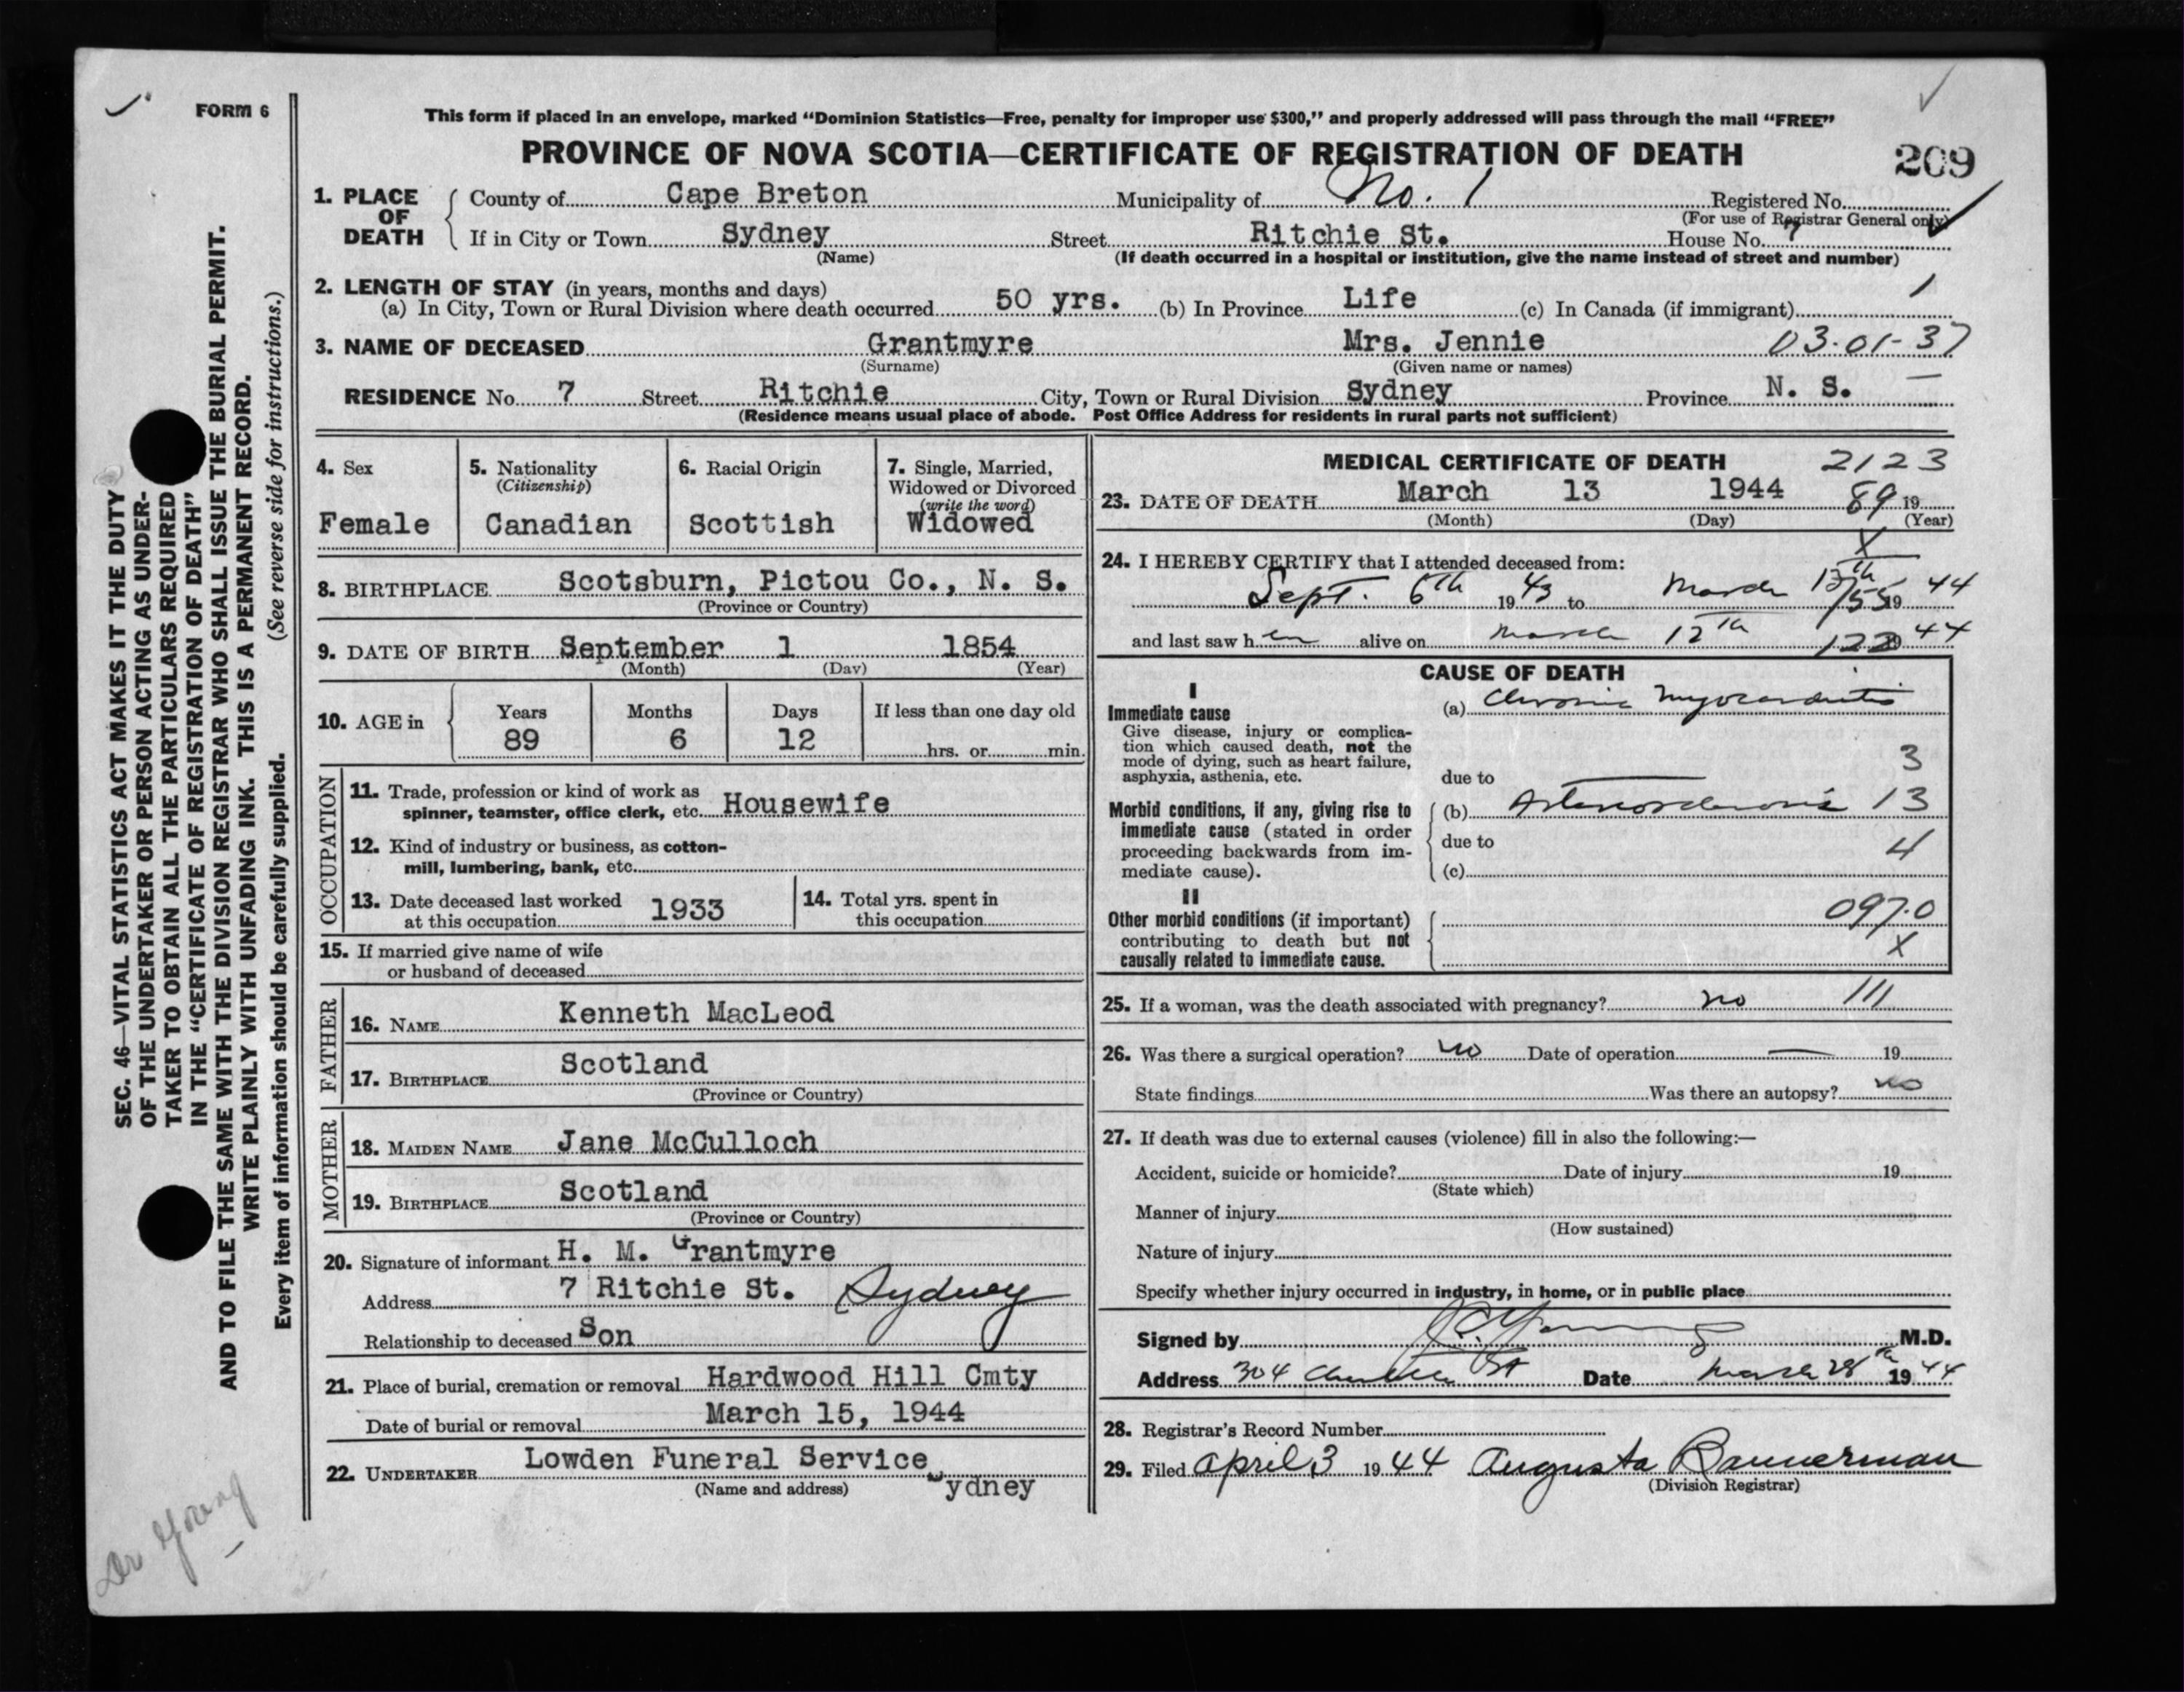 FORM 6
This form if placed in an envelope, marked “Dominion Statistics—Free, penalty for improper use $300,” and properly addressed will pass through the mail “FREE”
PROVINCE OF NOVA SCOTIA—CERTIFICATE OF REGISTRATION OF DEATH 209
1. PLACE OF DEATH { County of Cape Breton Municipality of No. 1 Registered No.
(For use of Registrar General only)
If in City or Town Sydney Street Ritchie St. House No. 7
(Name) (If death occurred in a hospital or institution, give the name instead of street and number)
2. LENGTH OF STAY (in years, months and days)
(a) In City, Town or Rural Division where death occurred 50 yrs. (b) In Province Life (c) In Canada (if immigrant) 1
3. NAME OF DECEASED Grantmyre Mrs. Jennie 03-01-37
(Surname) (Given name or names)
RESIDENCE No. 7 Street Ritchie City, Town or Rural Division Sydney Province N. S.
(Residence means usual place of abode. Post Office Address for residents in rural parts not sufficient)
4. Sex
Female
5. Nationality
(Citizenship)
Canadian
6. Racial Origin
Scottish
7. Single, Married,
Widowed or Divorced
(write the word)
Widowed
8. BIRTHPLACE Scotsburn, Pictou Co., N. S.
(Province or Country)
9. DATE OF BIRTH September 1 1854
(Month) (Day) (Year)
10. AGE in { Years Months Days If less than one day old
89 6 12 hrs. or min.
OCCUPATION
11. Trade, profession or kind of work as
spinner, teamster, office clerk, etc. Housewife
12. Kind of industry or business, as cotton-
mill, lumbering, bank, etc.
13. Date deceased last worked
at this occupation 1933
14. Total yrs. spent in
this occupation
15. If married give name of wife
or husband of deceased
FATHER
16. NAME Kenneth MacLeod
17. BIRTHPLACE Scotland
(Province or Country)
MOTHER
18. MAIDEN NAME Jane McCulloch
19. BIRTHPLACE Scotland
(Province or Country)
20. Signature of informant H. M. Grantmyre
Address 7 Ritchie St. Sydney
Relationship to deceased Son
21. Place of burial, cremation or removal Hardwood Hill Cmty
Date of burial or removal March 15, 1944
22. UNDERTAKER Lowden Funeral Service
(Name and address) Sydney
MEDICAL CERTIFICATE OF DEATH 2123
23. DATE OF DEATH March 13 1944 89 19
(Month) (Day) (Year)
X
24. I HEREBY CERTIFY that I attended deceased from:
Sept. 6th 19 43 to March 13th 19 44
and last saw h er alive on March 12th 19 44
CAUSE OF DEATH
I
Immediate cause (a) Chronic Myocarditis
Give disease, injury or complica-
tion which caused death, not the
mode of dying, such as heart failure,
asphyxia, asthenia, etc. due to 3
Morbid conditions, if any, giving rise to (b) Arteriosclerosis 13
immediate cause (stated in order
proceeding backwards from im- due to 4
mediate cause). (c)
II 097.0
Other morbid conditions (if important)
contributing to death but not X
causally related to immediate cause.
25. If a woman, was the death associated with pregnancy? no 111
26. Was there a surgical operation? no Date of operation — 19
State findings Was there an autopsy? no
27. If death was due to external causes (violence) fill in also the following:—
Accident, suicide or homicide? Date of injury 19
(State which)
Manner of injury
(How sustained)
Nature of injury
Specify whether injury occurred in industry, in home, or in public place
Signed by J. C. Young M.D.
Address 304 Charlotte St Date March 28th 19 44
28. Registrar’s Record Number
29. Filed April 3 19 44 Augusta Bannerman
(Division Registrar)
SEC. 46—VITAL STATISTICS ACT MAKES IT THE DUTY
OF THE UNDERTAKER OR PERSON ACTING AS UNDER-
TAKER TO OBTAIN ALL THE PARTICULARS REQUIRED
IN THE “CERTIFICATE OF REGISTRATION OF DEATH”
AND TO FILE THE SAME WITH THE DIVISION REGISTRAR WHO SHALL ISSUE THE BURIAL PERMIT.
WRITE PLAINLY WITH UNFADING INK. THIS IS A PERMANENT RECORD.
(See reverse side for instructions.)
Every item of information should be carefully supplied.
Dr Young